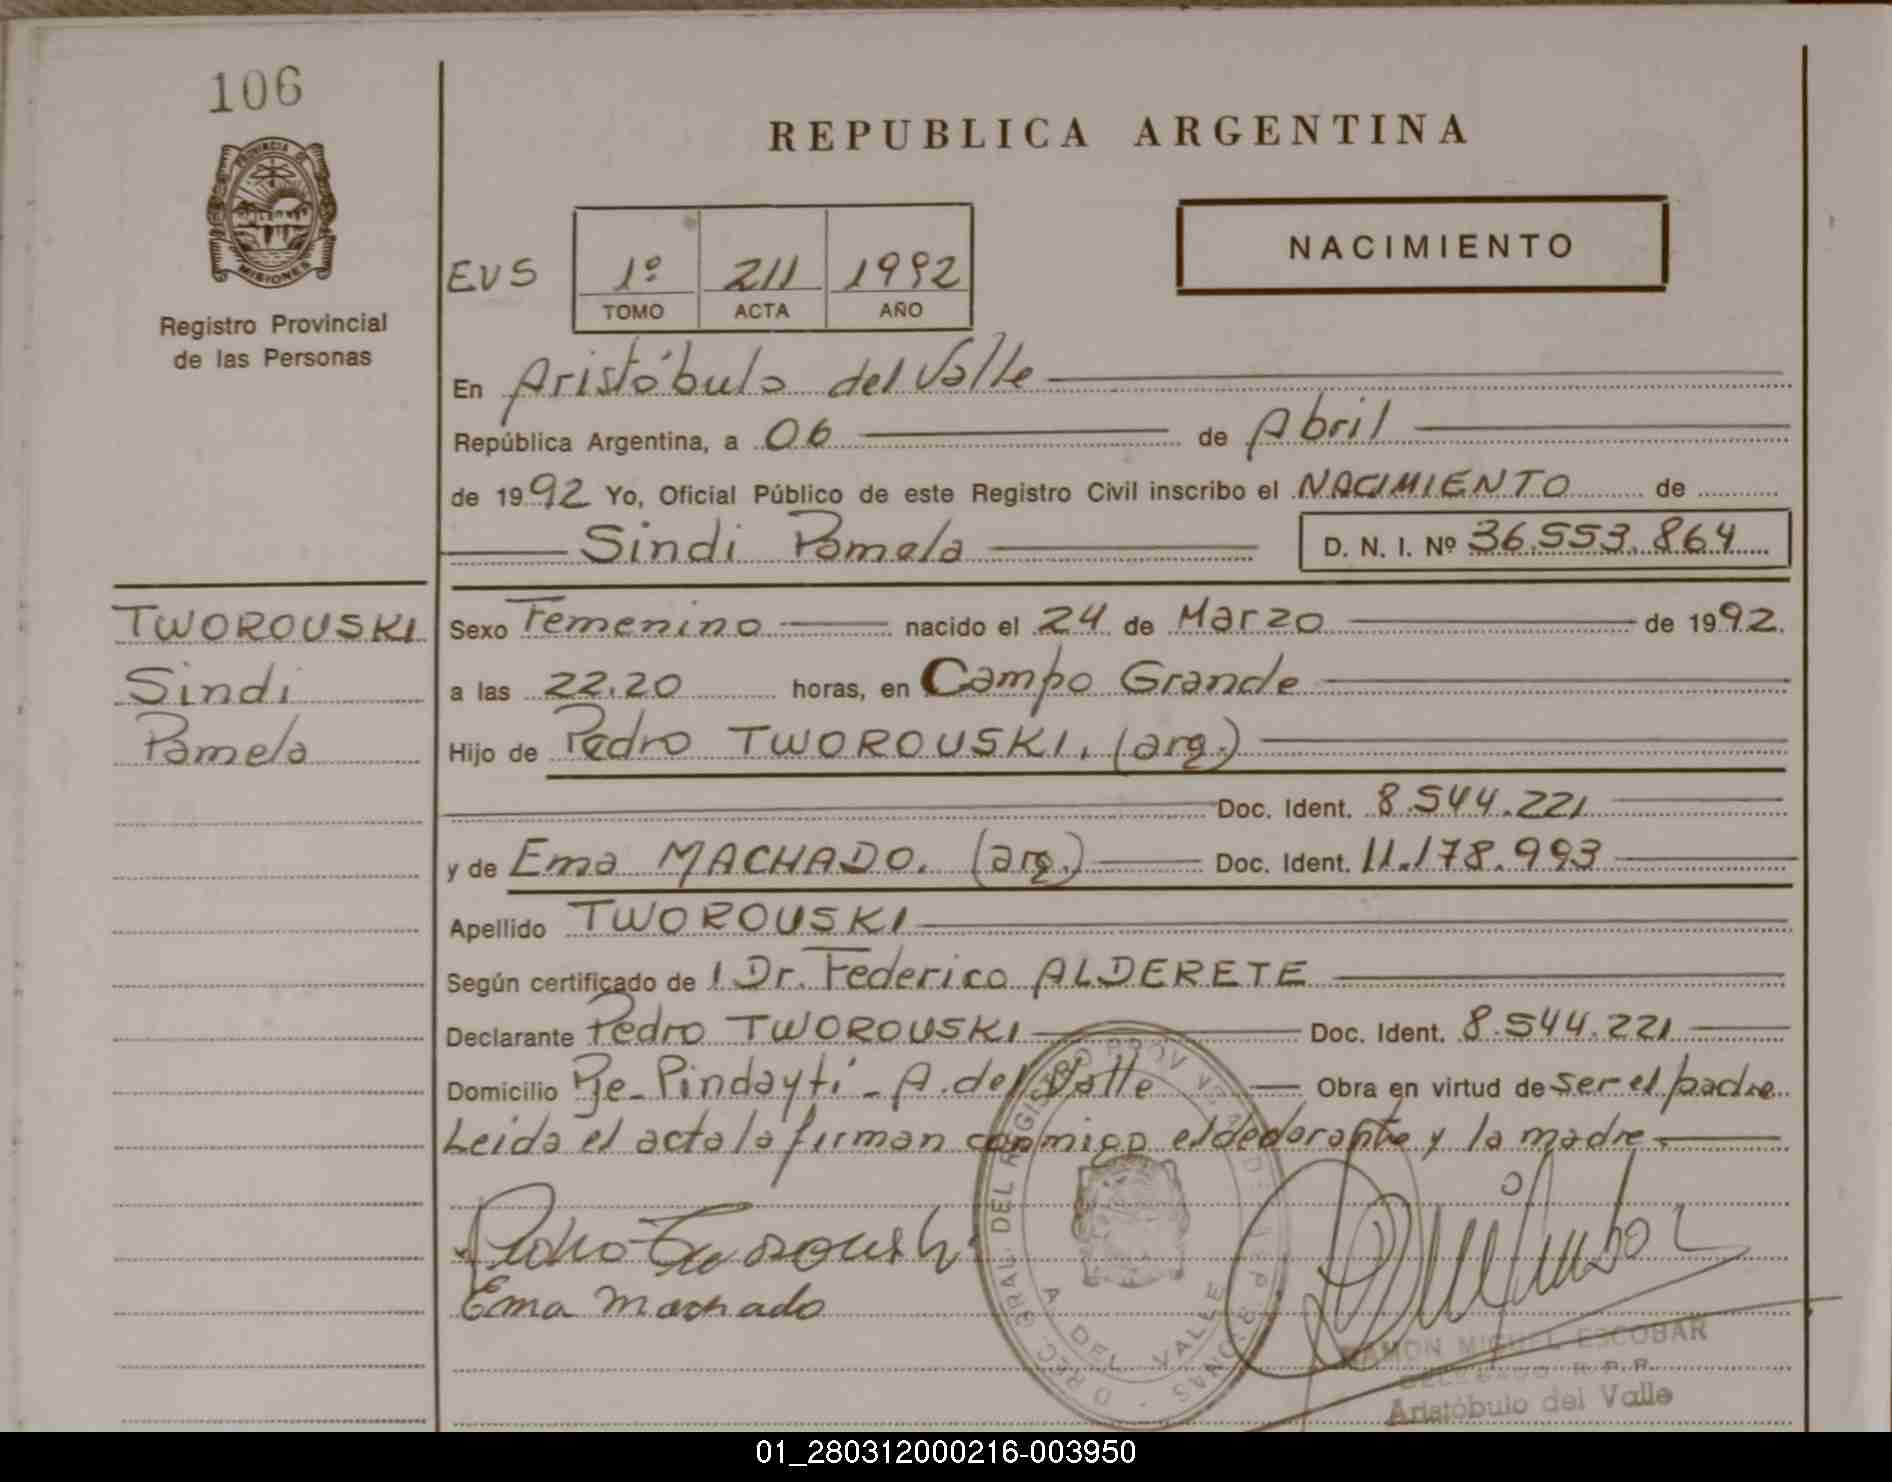 106
PROVINCIA DE
MISIONES
Registro Provincial
de las Personas
REPUBLICA ARGENTINA
NACIMIENTO
EVS
1º 211 1992
TOMO ACTA AÑO
En Aristóbulo del Valle
República Argentina, a 06 de Abril
de 1992 Yo, Oficial Público de este Registro Civil inscribo el NACIMIENTO de
Sindi Pamela D. N. I. Nº 36.553.864
TWOROUSKI
Sindi
Pamela
Sexo Femenino nacido el 24 de Marzo de 1992.
a las 22.20 horas, en Campo Grande
Hijo de Pedro TWOROUSKI. (arg.)
Doc. Ident. 8.544.221
y de Ema MACHADO. (arg.) Doc. Ident. 11.178.993
Apellido TWOROUSKI
Según certificado de l Dr. Federico ALDERETE
Declarante Pedro TWOROUSKI Doc. Ident. 8.544.221
Domicilio Pje. Pindaytí - A. del Valle Obra en virtud de ser el padre
Leida el acta la firman conmigo el declarante y la madre.
Pedro Tworouski
Ema Machado
A. DEL VALLE
RAMON MIGUEL ESCOBAR
DELEGADO R.P.P.
Aristóbulo del Valle
01_280312000216-003950